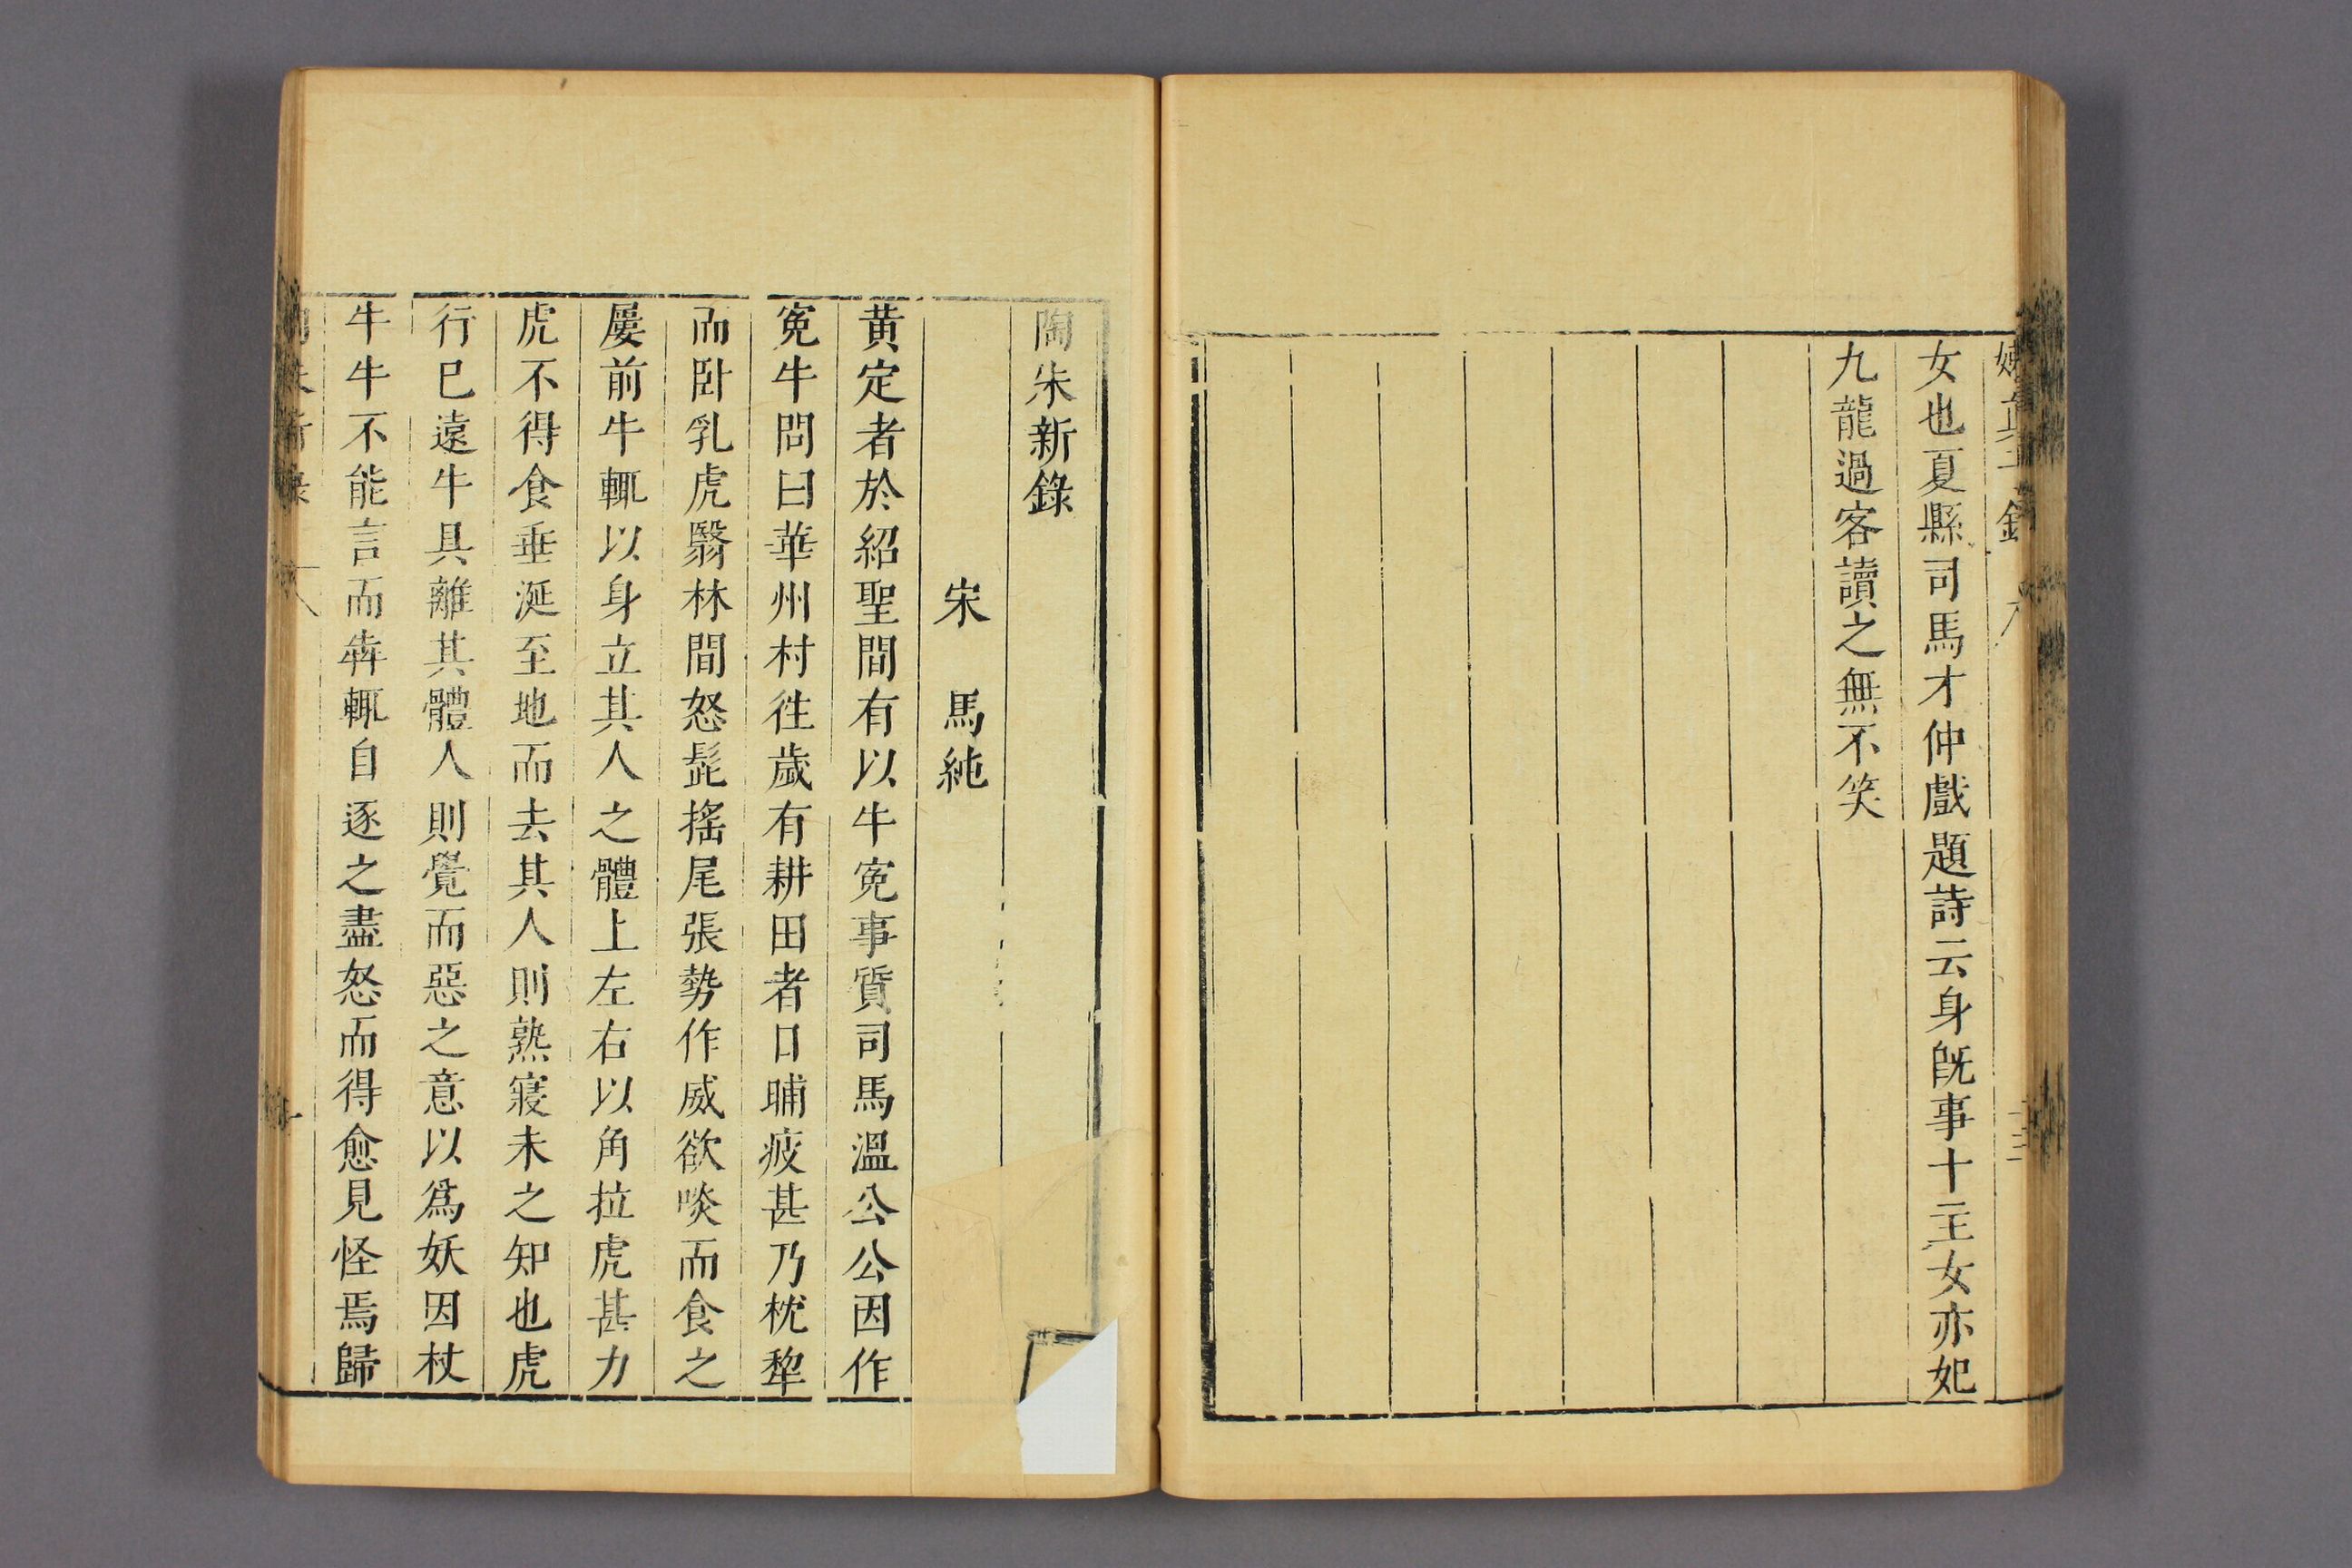 女也夏縣司馬才仲戲題詩云身旣事十主女亦妃
九龍過客讀之無不笑
陶朱新錄
宋　馬純
黃定者於紹聖間有以牛寃事質司馬溫公公因作
寃牛問曰華州村徃歲有耕田者日晡疲甚乃枕犂
而臥乳虎翳林間怒髭搖尾張勢作威欲啖而食之
屢前牛輒以身立其人之體上左右以角拉虎甚力
虎不得食垂涎至地而去其人則熟寢未之知也虎
行已遠牛具離其體人則覺而惡之意以爲妖因杖
牛牛不能言而犇輒自逐之盡怒而得愈見怪焉歸